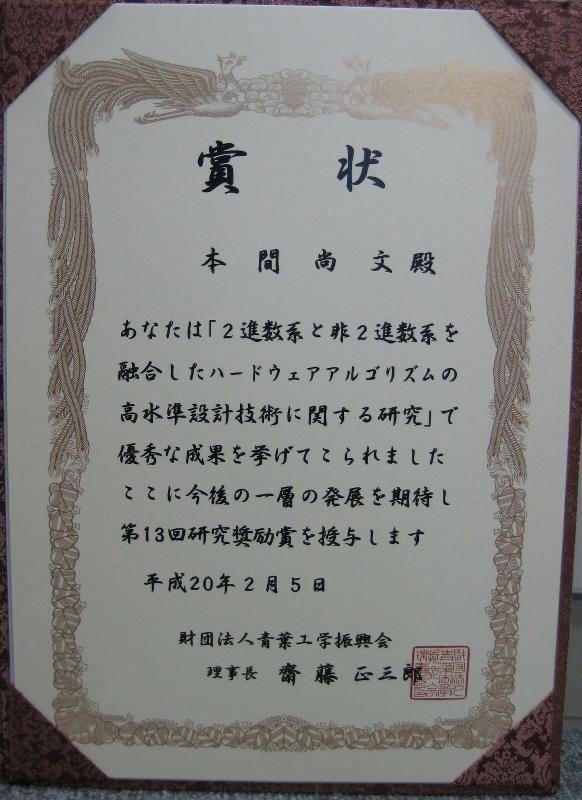 賞 状
本間尚文殿
あなたは「2進数系と非2進数系を
融合したハードウェアアルゴリズムの
高水準設計技術に関する研究」で
優秀な成果を挙げてこられました
ここに今後の一層の発展を期待し
第13回研究奨励賞を授与します
平成20年2月5日
財団法人青葉工学振興会
理事長 齋藤正三郎